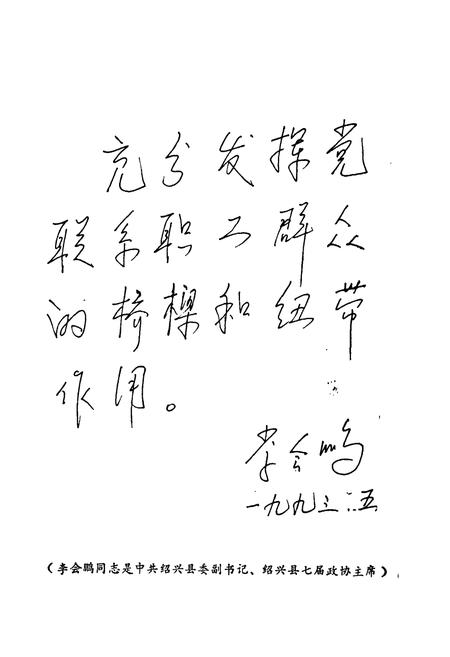 充分发挥党
联系职工群众
的桥梁和纽带
作用。
李会鹏
一九九三.二.五
(李会鹏同志是中共绍兴县委副书记、绍兴县七届政协主席)